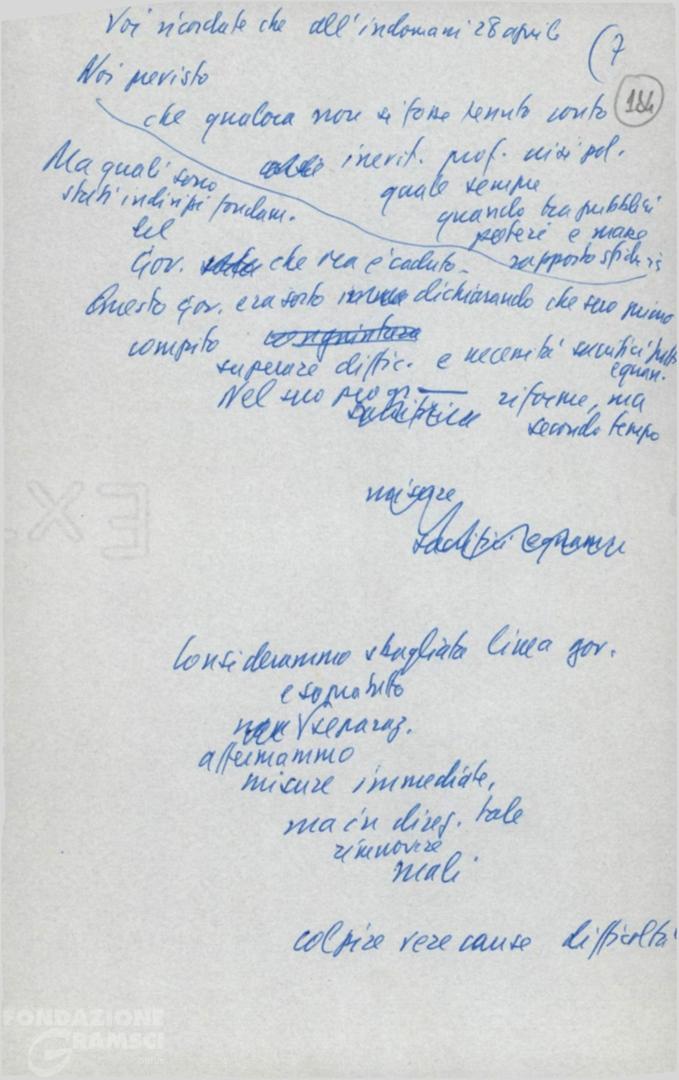 Voi ricordate che all'indomani 28 aprile
(7
184
Noi previsto
che qualora non si fosse tenuto conto
inevit. prof. crisi pol.
quale sempre
quando tra pubblici
poteri e masse
rapporto sfiducia
Ma quali sono
stati indirizzi fondam.
del
Gov. che ora è caduto.
Questo gov. era sorto dichiarando che suo primo
compito
superare diffic. e necessità sacrifici
equan.
Nel suo progr. riforme, ma
secondo tempo
misure
sacrifici equanim
Considerammo sbagliata linea gov.
e soprattutto
separaz.
affermammo
misure immediate,
ma in direz. tale
rimuovere
mali
colpire vere cause difficoltà
EX
FONDAZIONE
GRAMSCI